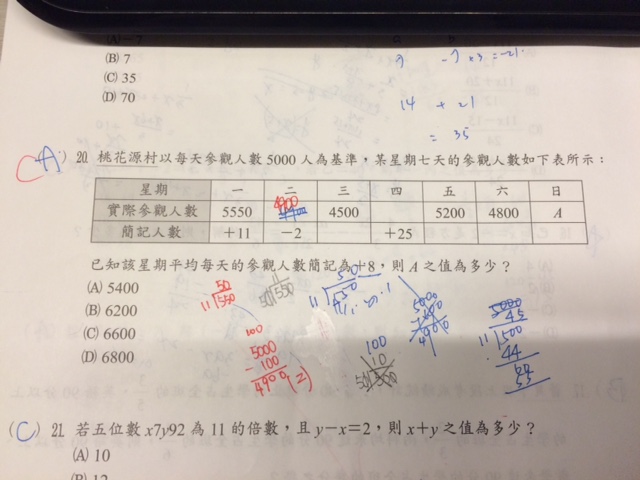 (A) −7
(B) 7
−7 ×3 = −21
(C) 35
(D) 70
14 + 21
= 35
(A) 20. 桃花源村以每天參觀人數 5000 人為基準，某星期七天的參觀人數如下表所示：
C
星期 一 二 三 四 五 六 日
實際參觀人數 5550 4900 4500 5200 4800 A
簡記人數 +11 −2 +25
已知該星期平均每天的參觀人數簡記為+8，則 A 之值為多少？
(A) 5400
(B) 6200
(C) 6600
(D) 6800
50
11 550
11
50 550
50
11 550
11:50:1
100
5000
− 100
4900 (2)
100
10
50 500
5000
4900
5000
45
11 500
44
(C) 21. 若五位數 x7y92 為 11 的倍數，且 y−x=2，則 x+y 之值為多少？
(A) 10
(B) 12